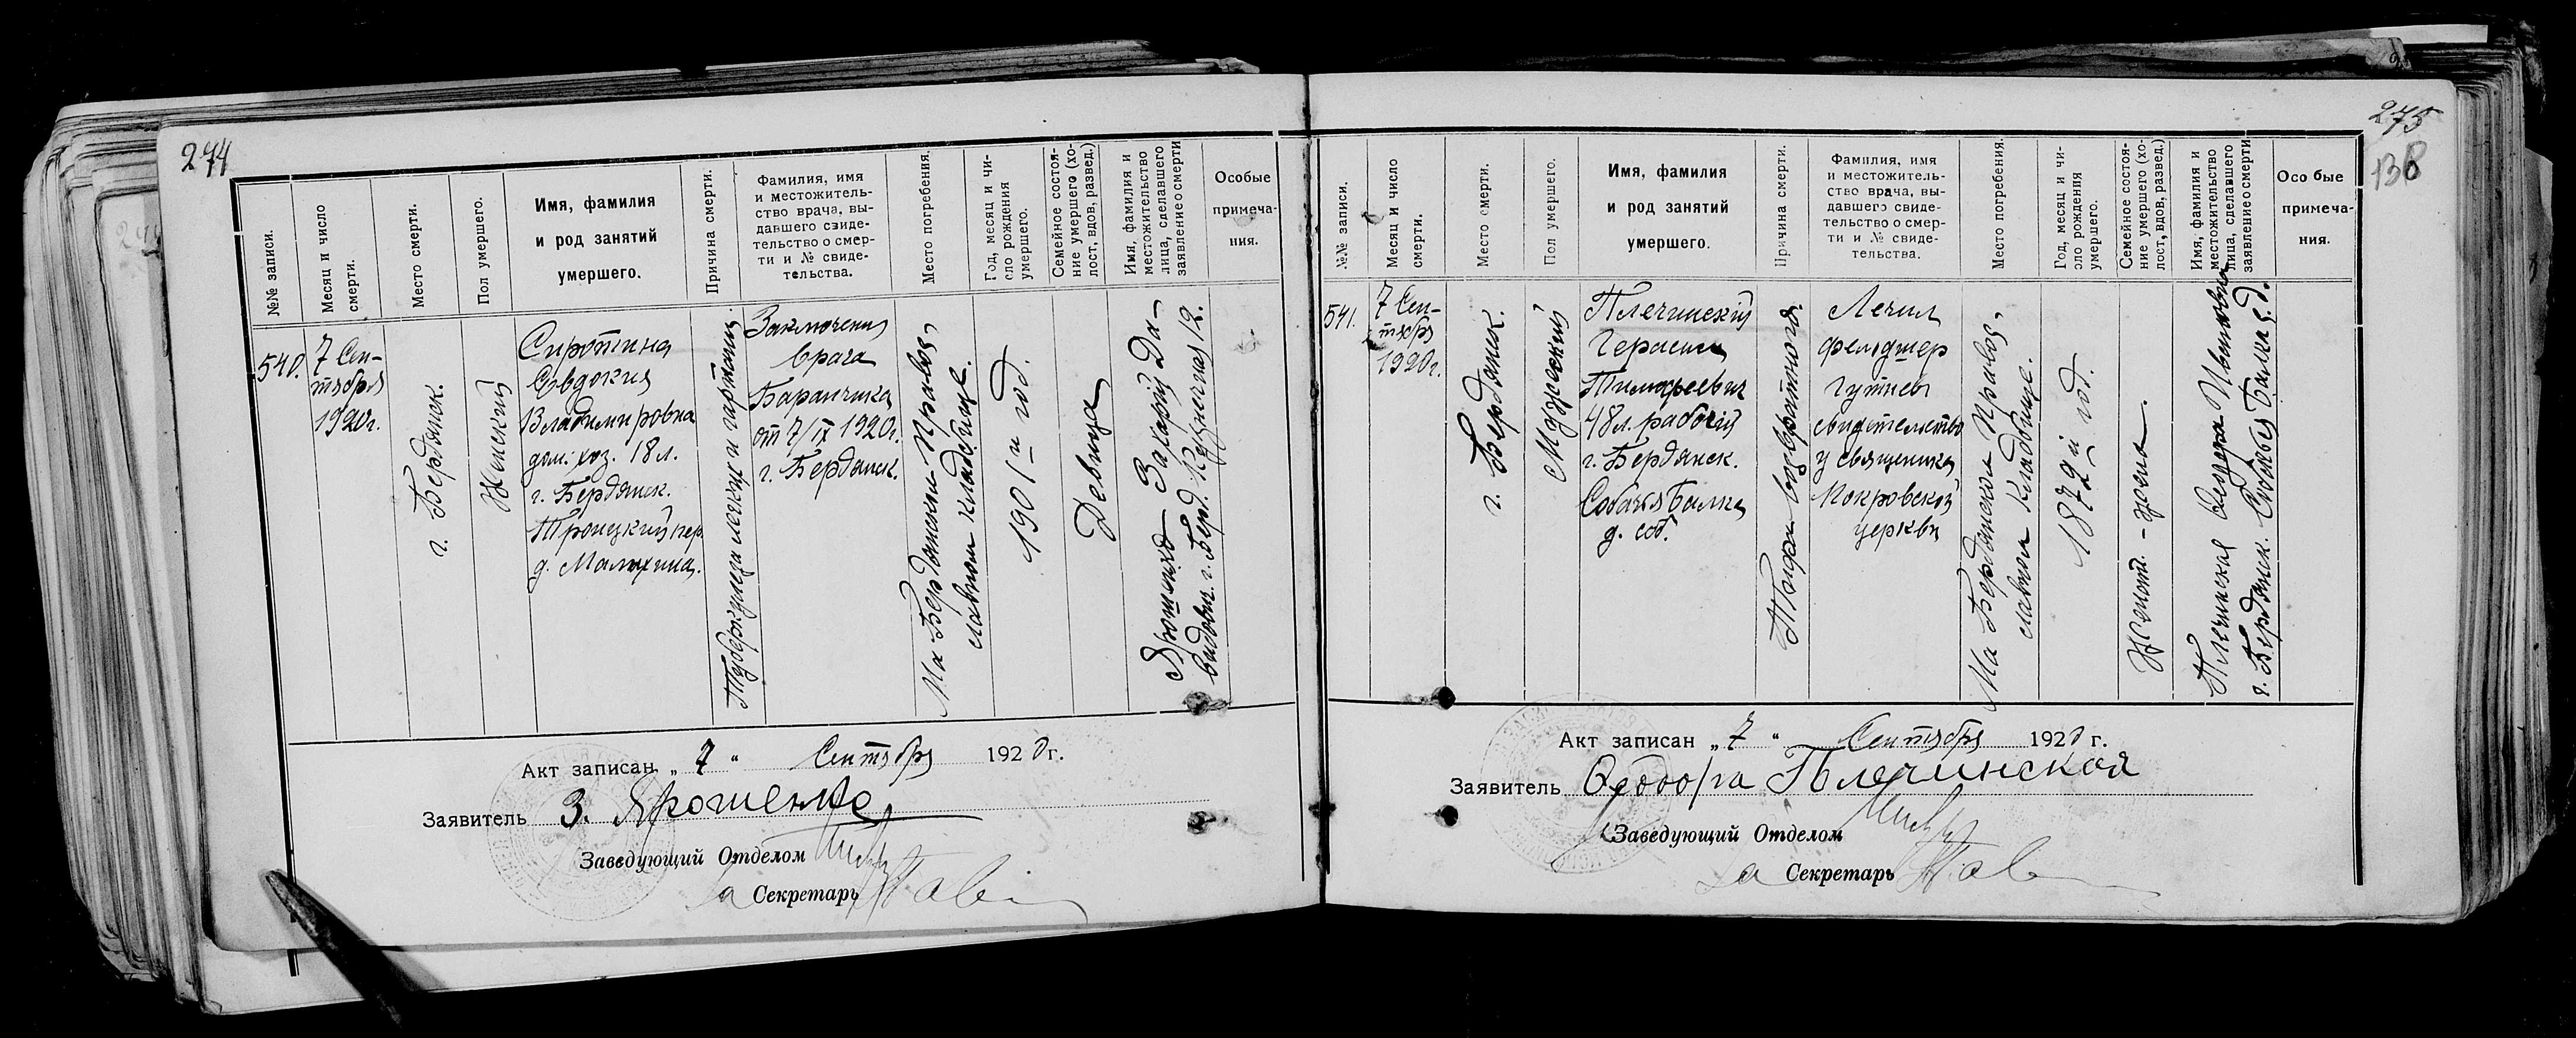 274
№№ записи.
Месяц и число
смерти.
Место смерти.
Пол умершего.
Имя, фамилия
и род занятий
умершего.
Причина смерти.
Фамилия, имя
и местожитель-
ство врача, вы-
давшего свиде-
тельство о смер-
ти и № свиде-
тельства.
Место погребения.
Год, месяц и чи-
сло рождения
умершего.
Семейное состоя-
ние умершего (хо-
лост, вдов, развед.)
Имя, фамилия и
местожительство
лица, сделавшего
заявление о смерти
Особые
примеча-
ния.
540.
7 Сен-
тября
1920г.
г. Бердянск.
Женский
Сиротина
Евдокия
Владимировна
дом. хоз. 18 л.
г. Бердянск.
Троицкий пер.
д. Малихина.
Туберкулез легких и гортани.
Заключения
врача
Баранчика
от 7/IX 1920г.
г. Бердянск.
На Бердянском Правос-
лавном кладбище.
1901 й год.
Девица
Ярошенко Захарий Да-
видович г. Берд. Кузнечная 12.
Акт записан „ 7 “ Сентября 1920 г.
Заявитель З. Ярошенко
Заведующий Отделом
За Секретарь
275
138
№№ записи.
Месяц и число
смерти.
Место смерти.
Пол умершего.
Имя, фамилия
и род занятий
умершего.
Причина смерти.
Фамилия, имя
и местожитель-
ство врача, вы-
давшего свиде-
тельство о смер-
ти и № свиде-
тельства.
Место погребения.
Год, месяц и чи-
сло рождения
умершего.
Семейное состоя-
ние умершего (хо-
лост, вдов, развед.)
Имя, фамилия и
местожительство
лица, сделавшего
заявление о смерти
Особые
примеча-
ния.
541.
7 Сен-
тября
1920г.
г. Бердянск.
Мужеский
Плечинский
Герасим
Тимофеевич
48 л. рабочий
г. Бердянск.
Собачья Балка
д. соб.
Тиф возвратной.
Лечил
фельдшер
Гутнев
свидетельство
у священника
Покровской
церкви
На Бердянском Правос-
лавном Кладбище.
1872 й год.
Женат.
Плечинская Федора Ивановна
г. Бердянск. Собачья Балка с. д.
Акт записан „ 7 “ Сентября 1920 г.
Заявитель Федора Плечинской
Заведующий Отделом
За Секретарь